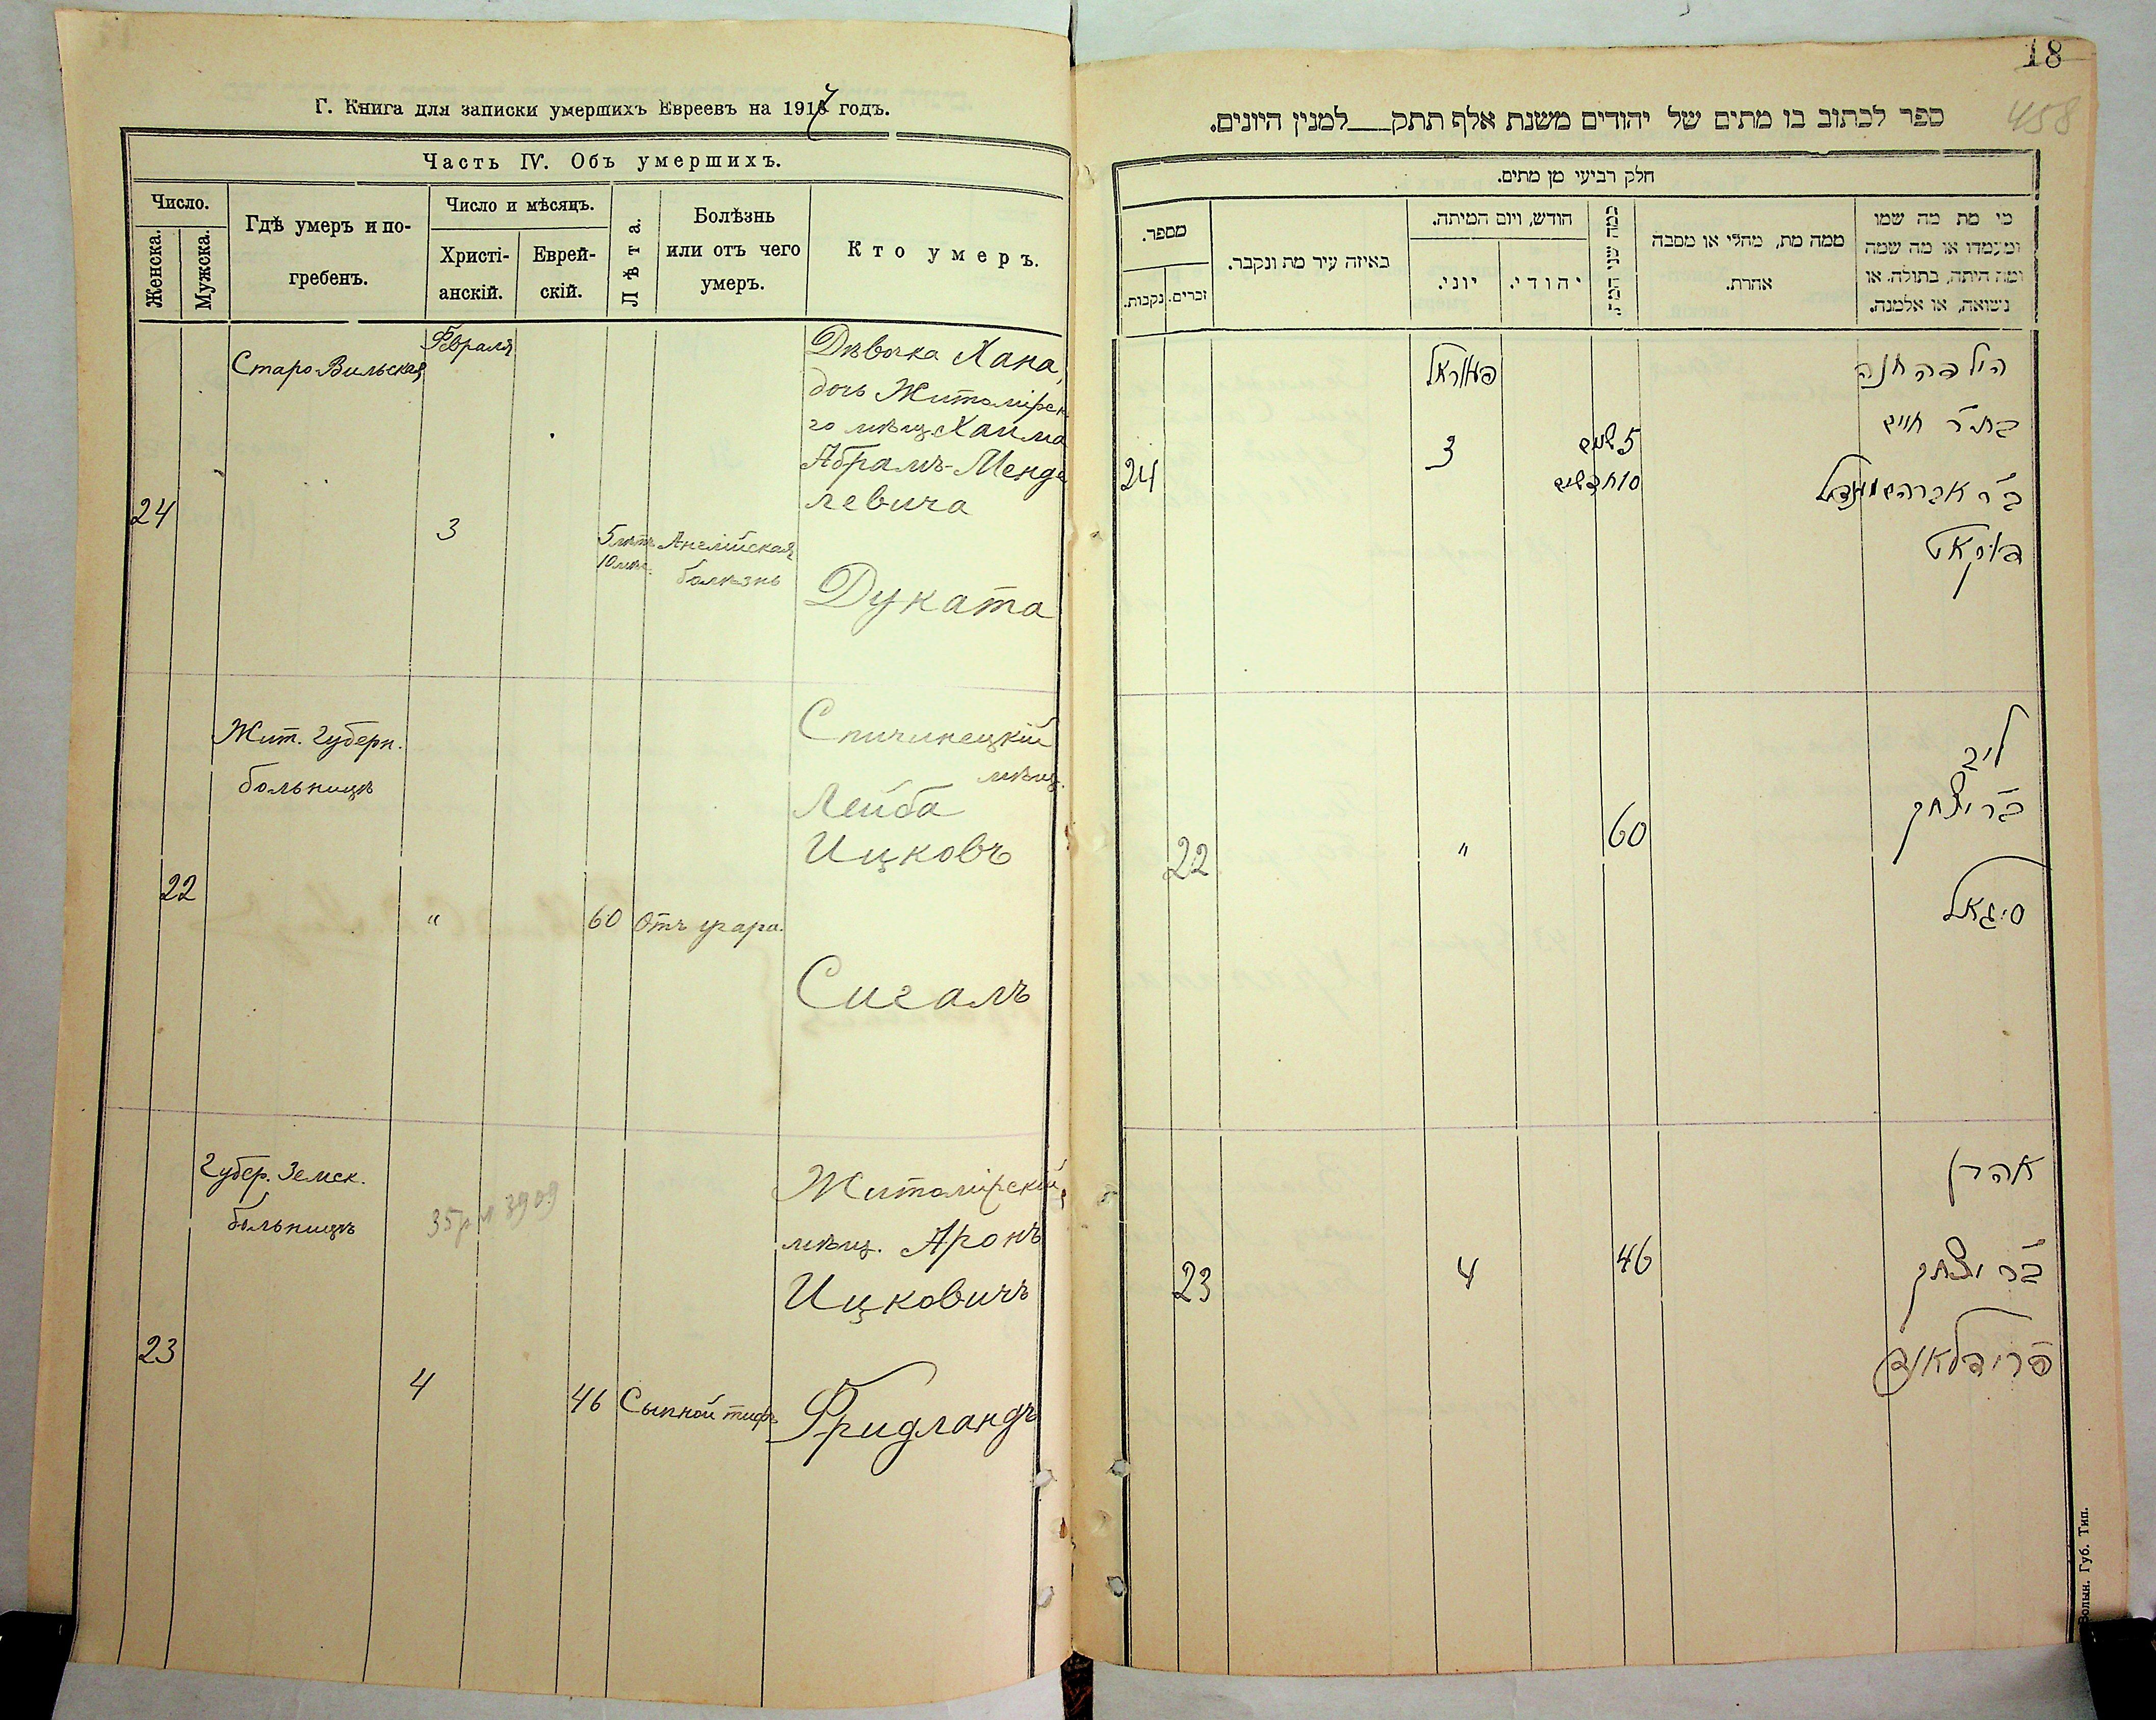 Г. Книга для записки умершихъ Евреевъ на 1917 годъ.
Часть IV. Объ умершихъ.
Число.
Женска.
Мужска.
Гдѣ умеръ и по-
гребенъ.
Число и мѣсяцъ.
Христі-
анскій.
Еврей-
скій.
Лѣта.
Болѣзнь
или отъ чего
умеръ.
Кто умеръ.
24
Старо-Вильская
Февраля
3
5 лѣтъ
10 мѣс.
Англійская
болѣзнь
Дѣвочка Хана,
дочь Житомірск
го мѣщ. Хаима
Абрамъ-Менде
левича
Дуката
22
Жит. Губерн.
больницѣ
"
60
Отъ угара.
Спичинецкій
мѣщ.
Лейба
Ицковъ
Сигалъ
23
Губер. Земск.
больницѣ
4
46
Сыпной тифъ
Житомірскій
мѣщ. Аронъ
Ицковичъ
Фридландъ
18
458
ספר לכתוב בו מתים של יהודים משנת אלף תתק___למנין היונים.
חלק רביעי מן מתים.
מספר.
נקבות.
זכרים.
באיזה עיר מת ונקבר.
חודש, ויום המיתה.
יוני.
יהודי.
כמה שני המת.
ממה מת, מחלי או מסבה
אחרת.
מי מת מה שמו
ומעמדו או מה שמה
ומה היתה, בתולה, או
נשואה, או אלמנה.
24
3
5 שנים
10 חדשים
הילדה חנה
בת ר' חיים
ב"ר אברהם מענדיל
דוקאט
22
"
60
ליב
ב"ר יצחק
סיגאל
23
4
46
אהרן
ב"ר יצחק
פרידלאנד
Волын. Губ. Тип.